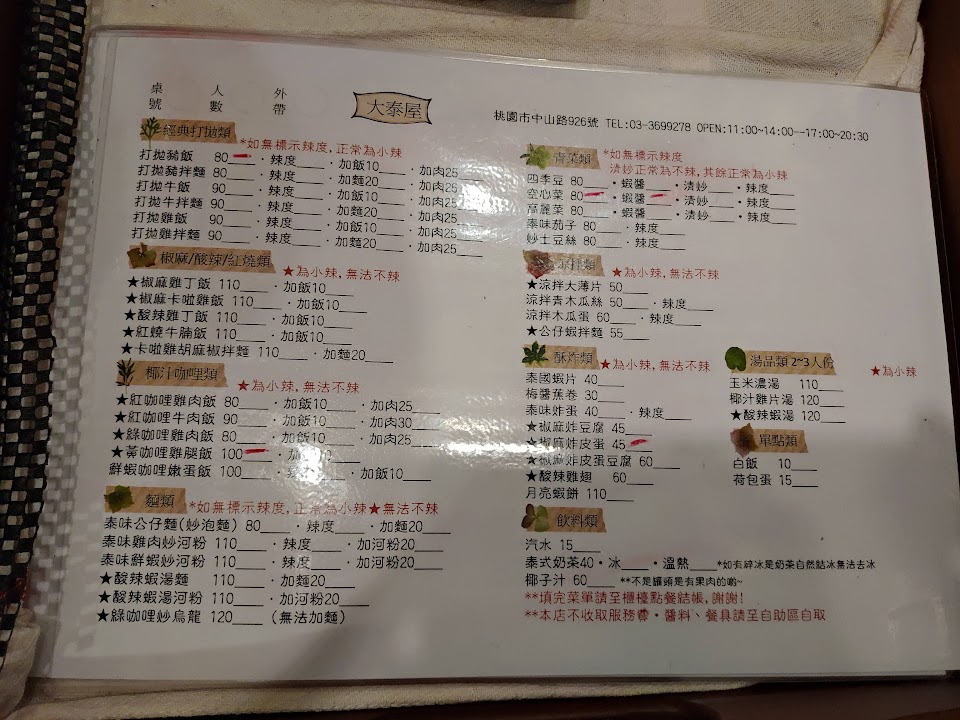 桌號 人數 外帶 大泰屋 桃園市中山路926號 TEL:03-3699278 OPEN:11:00~14:00--17:00~20:30
經典打拋類 *如無標示辣度,正常為小辣
打拋豬飯 80____·辣度____·加飯10____·加肉25____
打拋豬拌麵 80____·辣度____·加麵20____·加肉25____
打拋牛飯 90____·辣度____·加飯10____·加肉25____
打拋牛拌麵 90____·辣度____·加麵20____·加肉25____
打拋雞飯 90____·辣度____·加飯10____·加肉25____
打拋雞拌麵 90____·辣度____·加麵20____·加肉25____
椒麻/酸辣/紅燒類 ★為小辣,無法不辣
★椒麻雞丁飯 110____·加飯10____
★椒麻卡啦雞飯 110____·加飯10____
★酸辣雞丁飯 110____·加飯10____
★紅燒牛腩飯 110____·加飯10____
★卡啦雞胡麻椒拌麵 110____·加麵20____
椰汁咖哩類 ★為小辣,無法不辣
★紅咖哩雞肉飯 80____·加飯10____·加肉25____
★紅咖哩牛肉飯 90____·加飯10____·加肉30____
★綠咖哩雞肉飯 80____·加飯10____·加肉25____
★黃咖哩雞腿飯 100____·加飯10____
鮮蝦咖哩嫩蛋飯 100____·辣度____·加飯10____
麵類 *如無標示辣度,正常為小辣★無法不辣
泰味公仔麵(炒泡麵) 80____·辣度____·加麵20____
泰味雞肉炒河粉 110____·辣度____·加河粉20____
泰味鮮蝦炒河粉 110____·辣度____·加河粉20____
★酸辣蝦湯麵 110____·加麵20____
★酸辣蝦湯河粉 110____·加河粉20____
★綠咖哩炒烏龍 120____(無法加麵)
青菜類 *如無標示辣度
清炒正常為不辣,其餘正常為小辣
四季豆 80____·蝦醬____·清炒____·辣度____
空心菜 80____·蝦醬____·清炒____·辣度____
高麗菜 80____·蝦醬____·清炒____·辣度____
泰味茄子 80____·辣度____
炒土豆絲 80____·辣度____
涼拌類 ★為小辣,無法不辣
★涼拌大薄片 50____
涼拌青木瓜絲 50____·辣度____
涼拌木瓜蛋 60____·辣度____
★公仔蝦拌麵 55____
酥炸類 ★為小辣,無法不辣
泰國蝦片 40____
梅醬蕉卷 30____
泰味炸蛋 40____·辣度____
★椒麻炸豆腐 45____
★椒麻炸皮蛋 45____
★椒麻炸皮蛋豆腐 60____
★酸辣雞翅 60____
月亮蝦餅 110____
湯品類 2~3人份 ★為小辣
玉米濃湯 110____
椰汁雞片湯 120____
★酸辣蝦湯 120____
單點類
白飯 10____
荷包蛋 15____
飲料類
汽水 15____
泰式奶茶40·冰____·溫熱____*如有碎冰是奶茶自然結冰無法去冰
椰子汁 60____ **不是罐頭是有果肉的喲~
**填完菜單請至櫃檯點餐結帳,謝謝!
**本店不收取服務費·醬料、餐具請至自助區自取